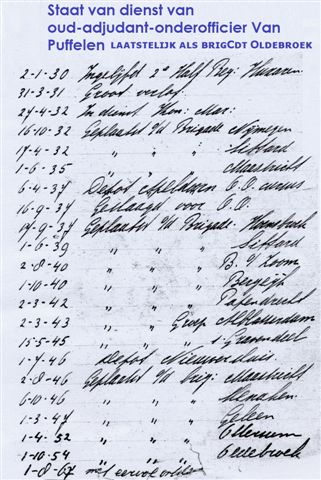 Staat van dienst van
oud-adjudant-onderofficier Van
Puffelen LAATSTELIJK ALS BRIGCDT OLDEBROEK
2-1-30 Ingelijfd 2e Half Reg: Huzaren
31-3-31 Groot verlof
27-4-32 In dienst Kon: Mar:
16-10-32 Geplaatst o/d Brigade Nijmegen
17-4-32 " " " Sittard
1-6-35 " Maastricht
6-4-37 Depot Apeldoorn O.O. cursus
16-9-37 Geslaagd voor O.O.
17-9-37 Geplaatst o/d Brigade Hoensbroek
1-6-39 " " " Sittard
2-8-40 " " " B. o/ Zoom
1-10-40 " " " Bergeijk
2-3-42 " " " Papendrecht
2-3-43 " " Groep Alblasserdam
15-5-45 " " " s-Gravendeel
1-7-46 Depot Nieuwersluis
2-8-46 Geplaatst o/d brig: Maastricht
6-10-46 " " " Heugem
1-3-47 " " " Geleen
1-4-52 " " " Ottersum
1-10-54 " " " Oldebroek
1-8-67 met eervol ontslag